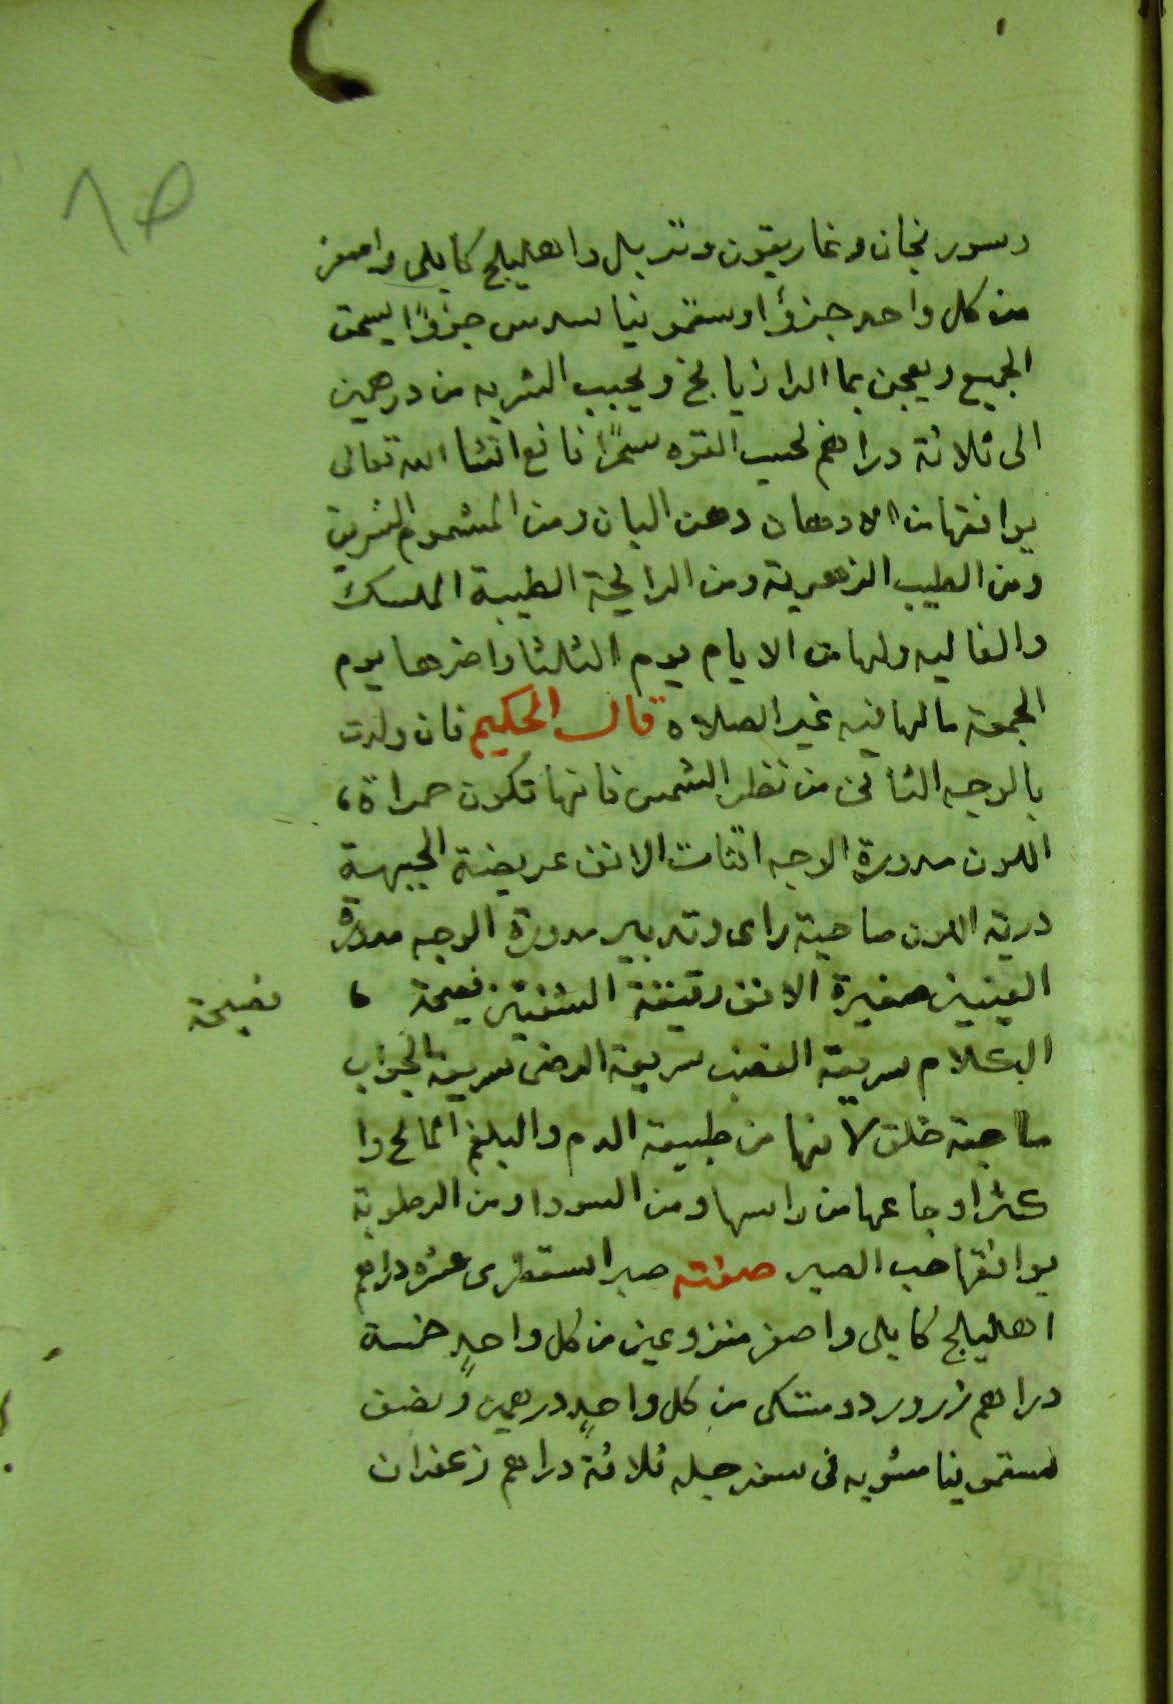 ٨٥
وسورنجان وغاريقون وتربل واهليلج كابلى واصفر
من كل واحد جزؤا وسقمونيا سدس جزؤًا يسحق
الجميع ويعجن بما الرازيانج ويحبب الشربه من درهمين
الى ثلاثة دراهم لحسب القوه سحرًا نافع انشا الله تعالى
يوافقها من الادهان دهن البان ومن المشموم النسرين
ومن الطيب الزهرية ومن الرايحة الطيبة المسك
والغاليه ولها من الايام يوم الثلثا واضرها يوم
الجمعة ما لها فيه غير الصلاه قال الحكيم فان ولدت
بالوجه الثانى من نظر الشمس فانها تكون حمراة
اللون مدورة الوجه الانف عريضة الجبهة
درية اللون صاحبة راى وتدبير مدورة الوجه مدورة
العينين صغيرة الانف رقيقة الشفتين فصيحة
فصيحة
الكلام سريعة الغضب سريعة الرضى سريعة الجواب
صاحبة خلق لانها من طبيعة الدم والبلغم المالح وا
كثر اوجاعها من راسها ومن السودا ومن الرطوبة
يوافقها حب الصبر صفته صبر اسقطرى عشره دراهم
اهليلج كابلى واصفر منزوعين من كل واحدٍ خمسة
دراهم زرورد ومستكى من كل واحدٍ درهمين ونصف
سقمونيا مشويه فى سفرجله ثلاثة دراهم زعفران